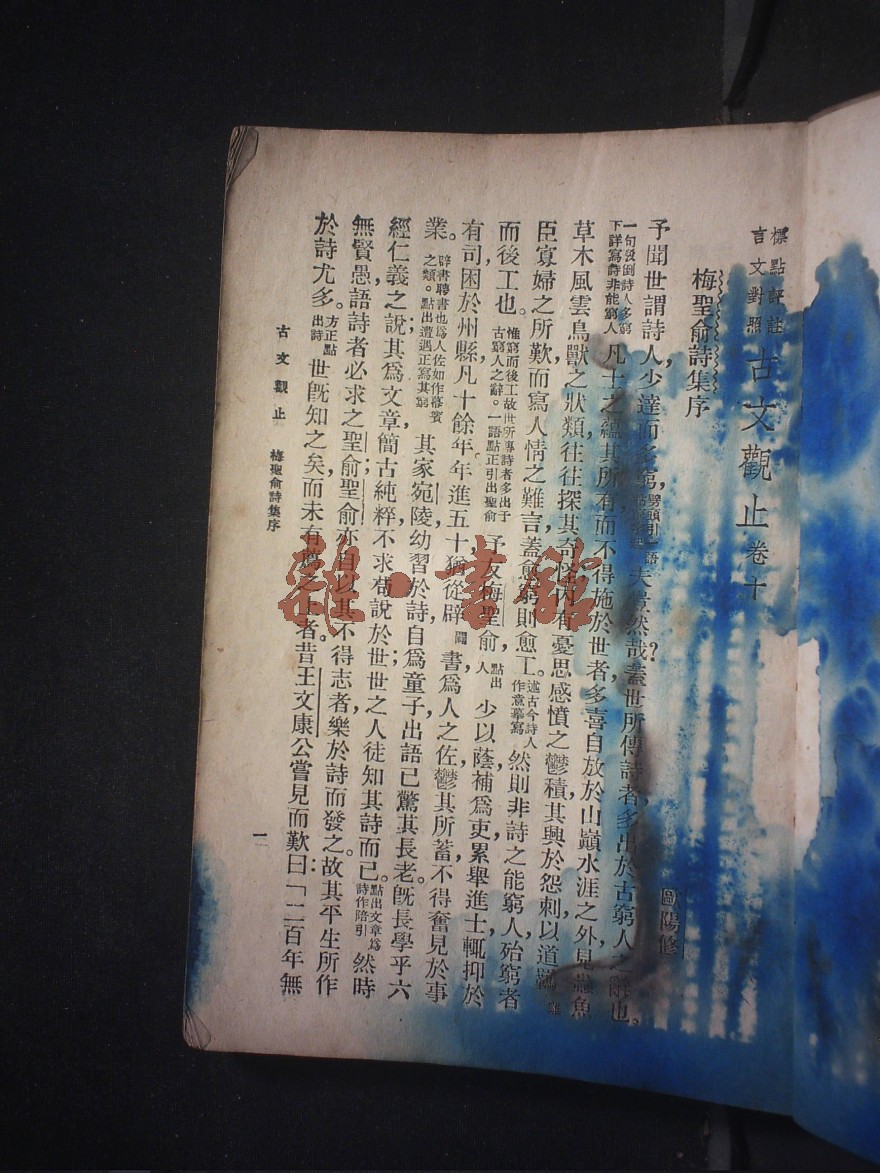 標點評註
言文對照
古文觀止 卷十
梅聖俞詩集序
陽修
予聞世謂詩人少達而多窮，劈頭引一語 夫豈然哉？蓋世所傳詩者，多出於古窮人之辭也。
一句發倒詩人多窮下詳寫詩非能窮人 凡士之蘊其所有而不得施於世者，多喜自放於山巔水涯之外，見蟲魚
草木風雲鳥獸之狀類，往往探其奇怪，內有憂思感憤之鬱積，其興於怨刺，以道羈
臣寡婦之所歎，而寫人情之難言，蓋愈窮則愈工。述古今詩人作意摹寫 然則非詩之能窮人，殆窮者
而後工也。惟窮而後工故世所專詩者多出于古窮人之辭。一語點正引出聖俞 予友梅聖俞，點出人 少以蔭補爲吏，累舉進士，輒抑於
有司，困於州縣凡十餘年。年進五十，猶從辟闢書，爲人之佐，鬱其所蓄，不得奮見於事
業。辟書聘書也爲人佐如作幕賓之類。點出遭遇正寫其窮 其家宛陵，幼習於詩，自爲童子，出語已驚其長老。既長，學乎六
經仁義之說；其爲文章，簡古純粹，不求苟說於世，世之人徒知其詩而已。點出文章爲詩作陪引 然時
無賢愚，語詩者必求之聖俞；聖俞亦自以其不得志者，樂於詩而發之。故其平生所作，
於詩尤多。方正點出詩 世既知之矣，而未有薦之上者。昔王文康公嘗見而歎曰：「二百年無
古文觀止 梅聖俞詩集序
一
雜·書館